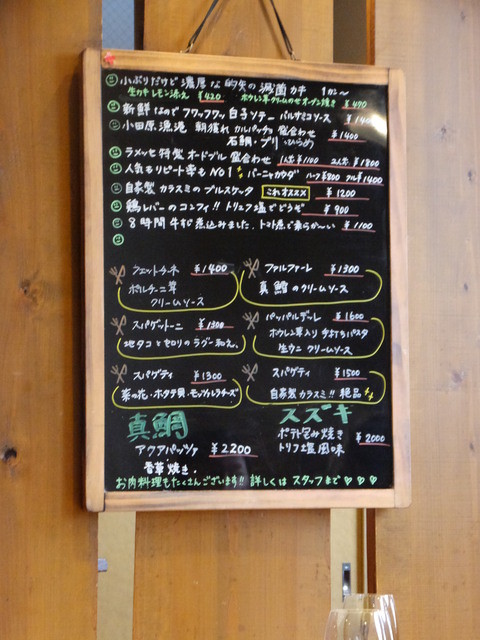 小ぶりだけど濃厚な的矢の滅菌カキ 1カ〜
生カキレモン添え ¥420 ホウレン草クリームのせオーブン焼き ¥470
新鮮なのでフワッフワッ 白子ソテー バルサミコソース
小田原漁港 朝獲れ カルパッチョ 盛合わせ ¥1400
石鯛・ブリ・ひらめ
ラメッセ特製 オードブル 盛合わせ 1人前¥1100 2人前¥1800
人気もリピート率もNO1 バーニャカウダ ハーフ¥800 フル¥1400
自家製 カラスミの ブルスケッタ これオススメ ¥1200
鶏レバーのコンフィ!! トリュフ塩でどうぞ ¥900
8時間 牛すじ煮込みました。トマト煮で柔らかーい ¥1100
フェットチーネ ¥1400
ポルチーニ茸
クリームソース
ファルファーレ ¥1300
真鱈のクリームソース
スパゲットーニ ¥1300
地タコとセロリのラグー和え。
パッパルデッレ ¥1600
ホウレン草入り 手打ちパスタ
生ウニ クリームソース
スパゲティ ¥1300
菜の花・ホタテ貝・モッツァレラチーズ
スパゲティ ¥1500
自家製カラスミ!! 絶品
真鯛
アクアパッツァ ¥2200
香草焼き.
スズキ
ポテト包み焼き
トリフ塩風味 ¥2000
お肉料理もたくさんございます!! 詳しくは スタッフまで ♡♡♡